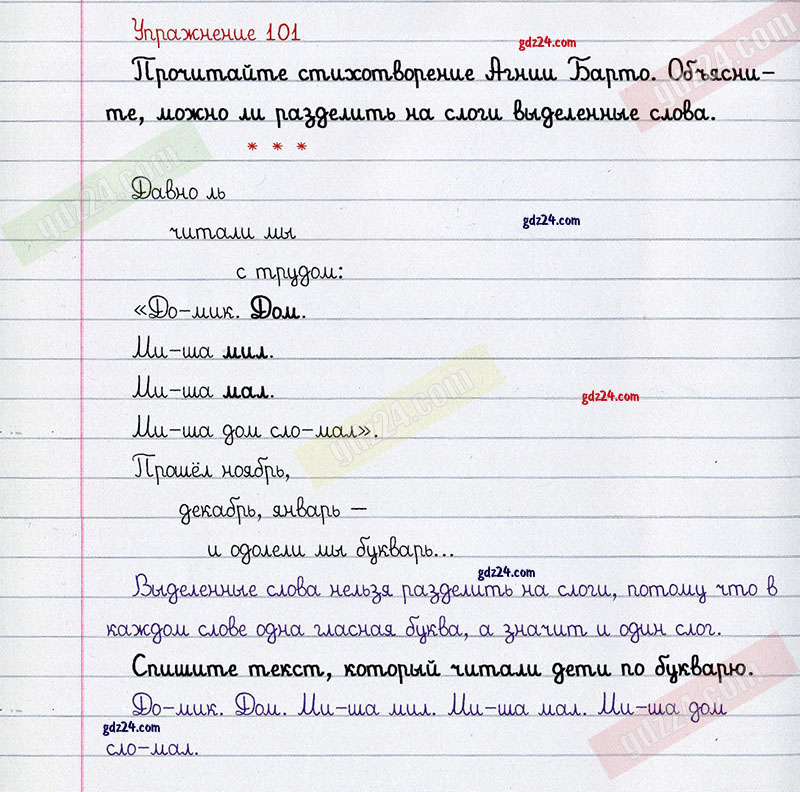 Упражнение 101
gdz24.com
Прочитайте стихотворение Агнии Барто. Объясни-
те, можно ли разделить на слоги выделенные слова.
* * *
Давно ль
gdz24.com
читали мы
с трудом:
«До-мик. Дом.
Ми-ша мил.
Ми-ша мал.
gdz24.com
Ми-ша дом сло-мал».
Прошёл ноябрь,
декабрь, январь –
и одолели мы букварь...
gdz24.com
Выделенные слова нельзя разделить на слоги, потому что в
каждом слове одна гласная буква, а значит и один слог.
Спишите текст, который читали дети по букварю.
До-мик. Дом. Ми-ша мил. Ми-ша мал. Ми-ша дом
gdz24.com
сло-мал.
gdz24.com
gdz24.com
gdz24.com
gdz24.com